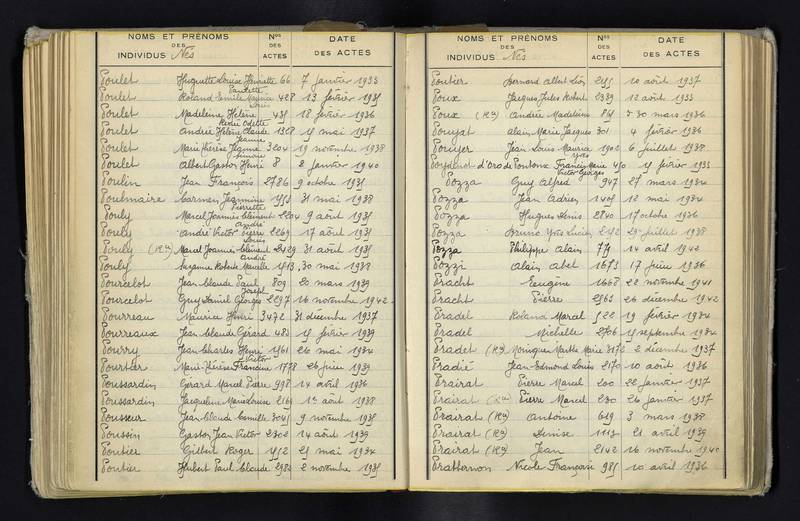 NOMS ET PRÉNOMS Nos DATE
DES DES
INDIVIDUS Nés ACTES DES ACTES
Poulet Huguette Louise Henriette 66 7 janvier 1933
Paulette
Poulet Roland Emile Maurice 428 13 février 1935
Poulet Madeleine Hélène 435 18 février 1936
Renée Odette
Poulet Andrée Hélène Claude 1328 15 mai 1937
Jeanne
Poulet Marie Thérèse Jeanne 3204 19 novembre 1938
Simone
Poulet Albert Gaston Henri 8 2 janvier 1940
Poulin Jean François 2786 9 octobre 1935
Poulmaire Carmen Jeannine 1553 31 mai 1938
Pierrette
Pouly Marcel Joannès Clément 2204 9 août 1935
André
Pouly André Victor Pierre 2269 17 août 1935
Louis
Pouly (Ron) Marcel Joannès Clément 2429 31 août 1935
André
Pouly Suzanne Roberte Marcelle 1513 30 mai 1938
Pourcelot Jean Claude Paul 809 20 mars 1939
Joseph
Pourcelot Guy Daniel Georges 2297 16 novembre 1942
Pourreau Maurice Henri 3472 31 décembre 1937
Pourreaux Jean Claude Gérard 483 15 février 1939
Pourry Jean Charles Henri 1561 26 mai 1934
Victor
Pourtier Marie Thérèse Francine 1778 26 juin 1939
Poussardin Gérard Marcel Pierre 998 14 avril 1936
Poussardin Jacqueline Marie Louise 2169 1er août 1938
Pousseur Jean Claude Camille 3045 9 novembre 1935
Poussin Gaston Jean Victor 2302 14 août 1939
Poutier Gilbert Roger 1552 25 mai 1934
Poutier Hubert Paul Claude 2982 2 novembre 1935
NOMS ET PRÉNOMS Nos DATE
DES DES
INDIVIDUS Nés ACTES DES ACTES
Poutier Bernard Albert Léon 2255 10 août 1937
Poux Jacques Jules Robert 2389 12 août 1933
Poux (Ron) Andrée Madeleine 865 30 mars 1936
Pouyat Alain Marie Jacques 301 4 février 1936
Pouyer Jean Louis Maurice 1902 6 juillet 1938
Yves
Francis Marie 450 15 février 1933
Victor Georges
Pozza Guy Alfred 947 27 mars 1934
Pozza Jean Adrien 1405 12 mai 1934
Pozza Hugues Denis 2840 17 octobre 1936
Pozza Bruno Yves Lucien 2152 29 juillet 1938
Pozza Philippe Alain 775 14 avril 1942
Pozzi Alain Abel 1673 17 juin 1936
Pracht Eugène 1668 22 novembre 1941
Pracht Pierre 2563 26 décembre 1942
Pradel Roland Marcel 522 19 février 1934
Pradel Michelle 2706 15 septembre 1934
Pradet (Ron) Monique Marthe Marie 3172 2 décembre 1937
Pradié Jean-Edmond Louis 2170 10 août 1936
Prairat Pierre Marcel 200 22 janvier 1937
Prairat (Ron) Pierre Marcel 230 26 janvier 1937
Prairat (Ron) Antoine 619 3 mars 1938
Prairat (Ron) Denise 1113 21 avril 1939
Prairat (Ron) Jean 2142 16 novembre 1940
Prathernon Nicole Françoise 985 10 avril 1936